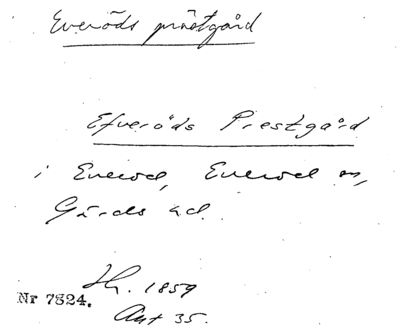 Everöds prästgård
Efveröds Prestgård
i Everöd, Everöd sn,
Gärds hd.
Hf. 1859
Nr 7824.
Ant 35.